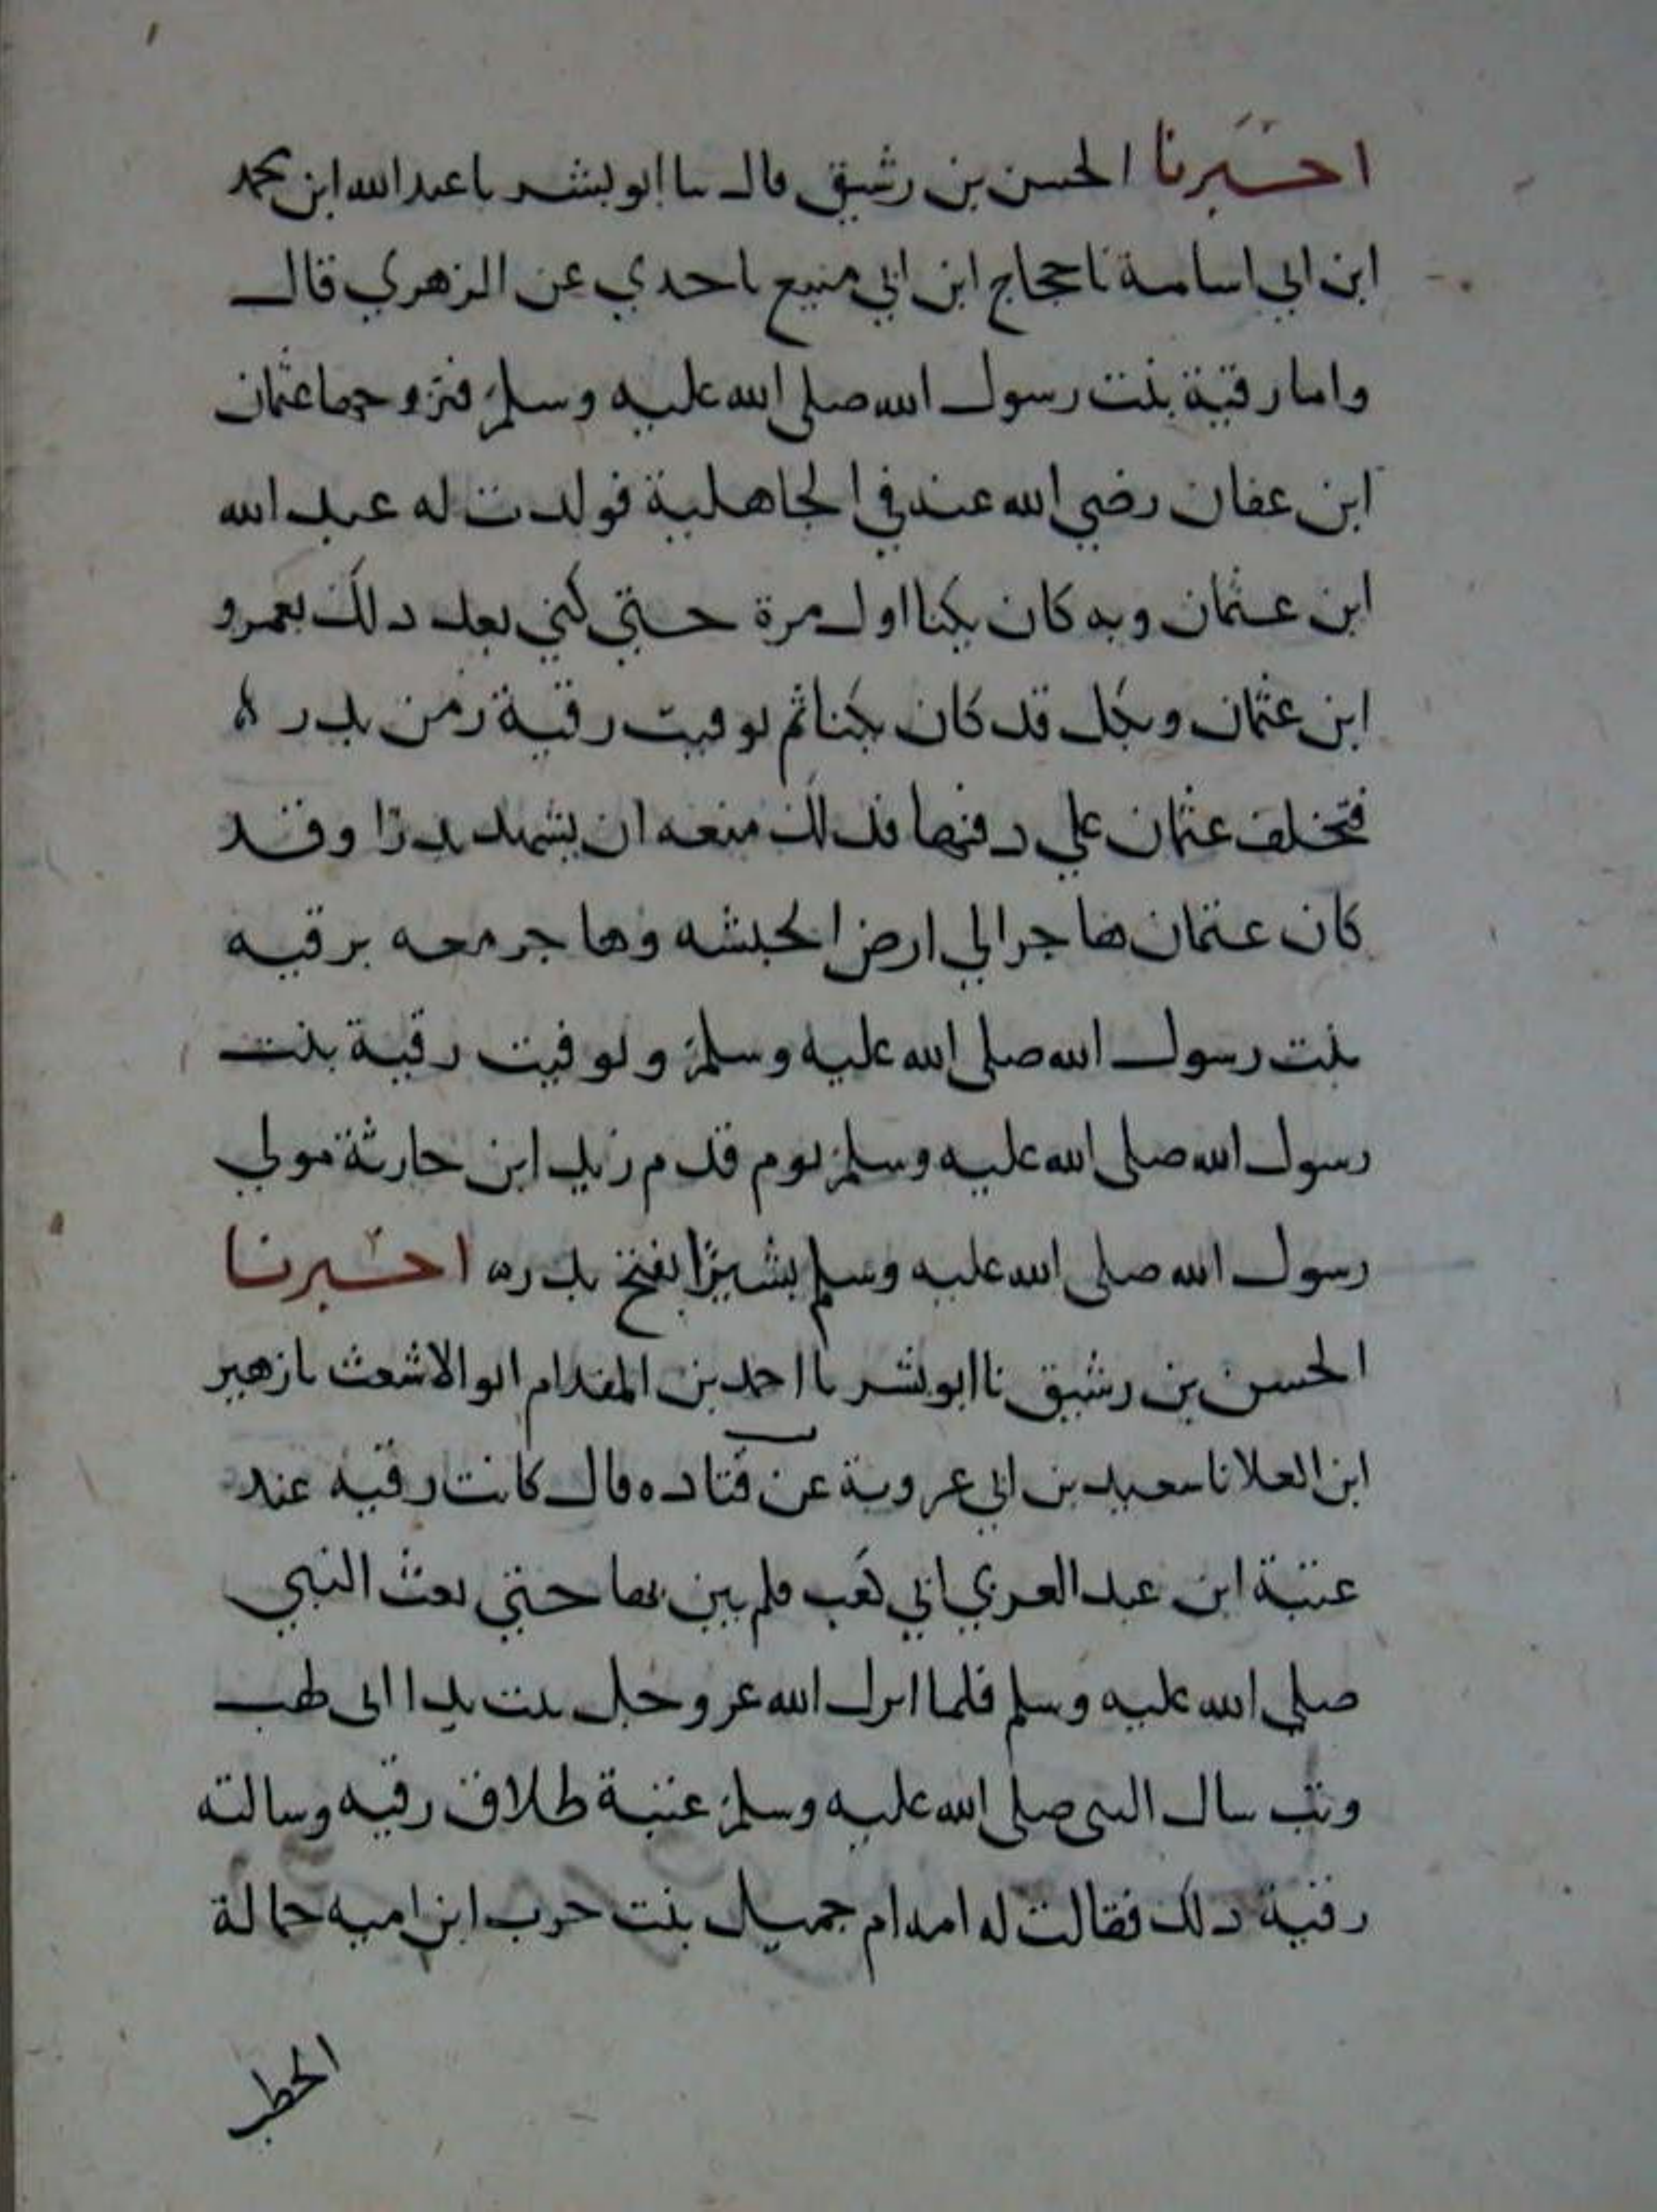 اخبرنا الحسن بن رشيق قال نا ابو بشر نا عبد الله ابن محمد
ابن ابي اسامة نا حجاج ابن ابي منيع نا جدي عن الزهري قال
واما رقية بنت رسول الله صلى الله عليه وسلم فتزوجها عثمان
ابن عفان رضي الله عنه في الجاهلية فولدت له عبد الله
ابن عثمان وبه كان يكنا اول مرة حتي كني بعد ذلك بعمرو
ابن عثمان وبكل قد كان يكنا ثم توفيت رقية زمن بدر ه
فتخلف عثمان علي دفنها فذلك منعه ان يشهد بدرا وقد
كان عثمان هاجر الي ارض الحبشه وهاجر معه برقيه
بنت رسول الله صلى الله عليه وسلم وتوفيت رقية بنت
رسول الله صلى الله عليه وسلم يوم قدم زيد ابن حارثة مولي
رسول الله صلى الله عليه وسلم بشيرًا بفتح بدر ه اخبرنا
الحسن بن رشيق نا ابو بشر نا احمد بن المقدام ابو الاشعث نا زهير
ابن العلا نا سعيد بن ابي عروبة عن قتاده قال كانت رقيه عند
عتبة ابن عبد العزي ابي لهب فلم يبن بها حتي بعث النبي
صلي الله عليه وسلم فلما انزل الله عز وجل تبت يدا ابى لهب
وتب سال النبى صلى الله عليه وسلم عتبة طلاق رقيه وسالته
رقية ذلك فقالت له امه ام جميل بنت حرب ابن اميه حمالة
الحطب